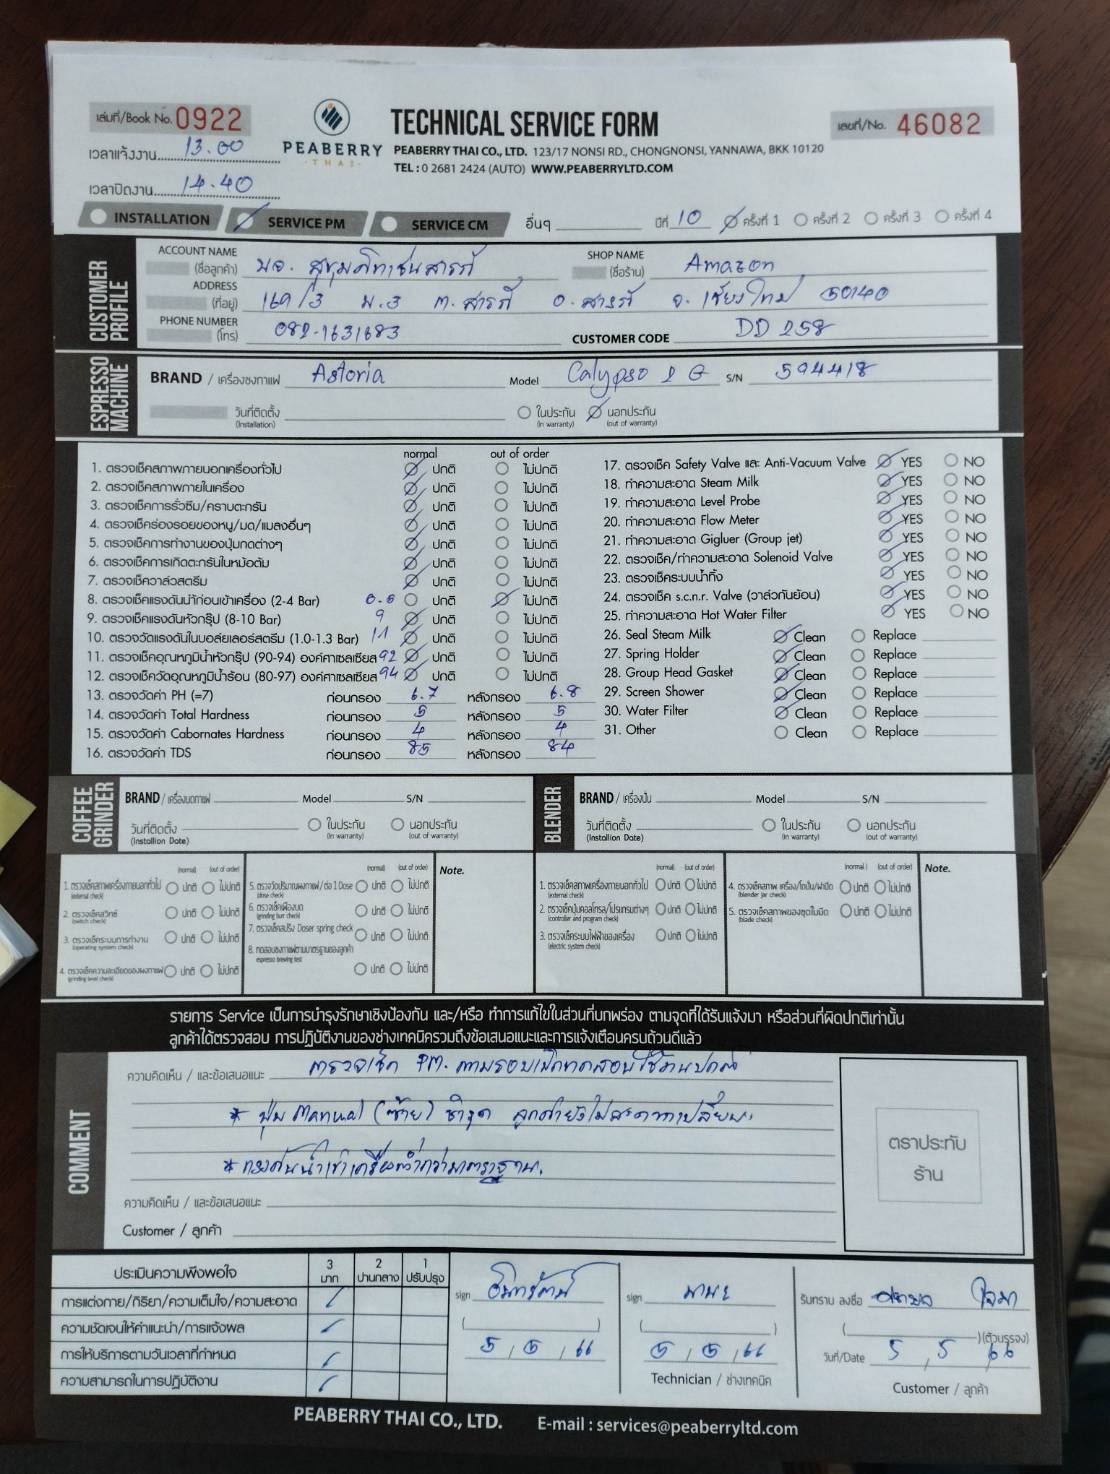 เล่มที่/Book No. 0922
PEABERRY
THAI
TECHNICAL SERVICE FORM
เลขที่/No. 46082
PEABERRY THAI CO., LTD. 123/17 NONSI RD., CHONGNONSI, YANNAWA, BKK 10120
TEL : 0 2681 2424 (AUTO) WWW.PEABERRYLTD.COM
เวลาแจ้งงาน 13.00
เวลาปิดงาน 14.40
INSTALLATION SERVICE PM SERVICE CM อื่นๆ ปีที่ 10 ครั้งที่ 1 ครั้งที่ 2 ครั้งที่ 3 ครั้งที่ 4
CUSTOMER PROFILE
ACCOUNT NAME (ชื่อลูกค้า) SHOP NAME (ชื่อร้าน) Amazon
ADDRESS (ที่อยู่) 169/3 ม.3 ต. สารภี อ. สารภี จ. เชียงใหม่ 50140
PHONE NUMBER (โทร) 082-1631683 CUSTOMER CODE DD 258
ESPRESSO MACHINE
BRAND / เครื่องชงกาแฟ Astoria Model Calypso 2 G S/N 594418
วันที่ติดตั้ง (Installation) ในประกัน (In warranty) นอกประกัน (out of warranty)
normal out of order
1. ตรวจเช็คสภาพภายนอกเครื่องทั่วไป ปกติ ไม่ปกติ
2. ตรวจเช็คสภาพภายในเครื่อง ปกติ ไม่ปกติ
3. ตรวจเช็คการรั่วซึม/คราบตะกรัน ปกติ ไม่ปกติ
4. ตรวจเช็คร่องรอยของหนู/มด/แมลงอื่นๆ ปกติ ไม่ปกติ
5. ตรวจเช็คการทำงานของปุ่มกดต่างๆ ปกติ ไม่ปกติ
6. ตรวจเช็คการเกิดตะกรันในหม้อต้ม ปกติ ไม่ปกติ
7. ตรวจเช็ควาล์วสตรีม ปกติ ไม่ปกติ
8. ตรวจเช็คแรงดันน้ำก่อนเข้าเครื่อง (2-4 Bar) 0.6 ปกติ ไม่ปกติ
9. ตรวจเช็คแรงดันหัวกรุ๊ป (8-10 Bar) 9 ปกติ ไม่ปกติ
10. ตรวจวัดแรงดันในบอล์ยเลอร์สตรีม (1.0-1.3 Bar) 1.1 ปกติ ไม่ปกติ
11. ตรวจเช็คอุณหภูมิน้ำหัวกรุ๊ป (90-94) องศาเซลเซียส 92 ปกติ ไม่ปกติ
12. ตรวจเช็ควัดอุณหภูมิน้ำร้อน (80-97) องศาเซลเซียส 94 ปกติ ไม่ปกติ
13. ตรวจวัดค่า PH (=7) ก่อนกรอง 6.7 หลังกรอง 6.8
14. ตรวจวัดค่า Total Hardness ก่อนกรอง 5 หลังกรอง 5
15. ตรวจวัดค่า Cabornates Hardness ก่อนกรอง 4 หลังกรอง 4
16. ตรวจวัดค่า TDS ก่อนกรอง 85 หลังกรอง 84
17. ตรวจเช็ค Safety Valve และ Anti-Vacuum Valve YES NO
18. ทำความสะอาด Steam Milk YES NO
19. ทำความสะอาด Level Probe YES NO
20. ทำความสะอาด Flow Meter YES NO
21. ทำความสะอาด Gigluer (Group jet) YES NO
22. ตรวจเช็ค/ทำความสะอาด Solenoid Valve YES NO
23. ตรวจเช็คระบบน้ำทิ้ง YES NO
24. ตรวจเช็ค s.c.n.r. Valve (วาล์วกันย้อน) YES NO
25. ทำความสะอาด Hot Water Filter YES NO
26. Seal Steam Milk Clean Replace
27. Spring Holder Clean Replace
28. Group Head Gasket Clean Replace
29. Screen Shower Clean Replace
30. Water Filter Clean Replace
31. Other Clean Replace
COFFEE GRINDER
BRAND / เครื่องบดกาแฟ Model S/N
วันที่ติดตั้ง (Installion Date) ในประกัน (In warranty) นอกประกัน (out of warranty)
(normal) (out of order) (normal) (out of order) Note.
1. ตรวจเช็คสภาพเครื่องภายนอกทั่วไป (external check) ปกติ ไม่ปกติ
2. ตรวจเช็คสวิทช์ (switch check) ปกติ ไม่ปกติ
3. ตรวจเช็คระบบการทำงาน (operating system check) ปกติ ไม่ปกติ
4. ตรวจเช็คความละเอียดของผงกาแฟ (grinding level check) ปกติ ไม่ปกติ
5. ตรวจวัดปริมาณผงกาแฟ/ต่อ 1 Dose (dose check) ปกติ ไม่ปกติ
6. ตรวจเช็คเฟืองบด (grinding burr check) ปกติ ไม่ปกติ
7. ตรวจเช็คสปริง Doser spring check ปกติ ไม่ปกติ
8. ทดสอบชงกาแฟตามมาตรฐานของลูกค้า espresso brewing test ปกติ ไม่ปกติ
BLENDER
BRAND / เครื่องปั่น Model S/N
วันที่ติดตั้ง (Installion Date) ในประกัน (In warranty) นอกประกัน (out of warranty)
(normal) (out of order) (normal) (out of order) Note.
1. ตรวจเช็คสภาพเครื่องภายนอกทั่วไป (external check) ปกติ ไม่ปกติ
2. ตรวจเช็คปุ่มคอลโทรล/โปรแกรมต่างๆ (controller and program check) ปกติ ไม่ปกติ
3. ตรวจเช็คระบบไฟฟ้าของเครื่อง (electric system check) ปกติ ไม่ปกติ
4. ตรวจเช็คสภาพ เครื่อง/โถปั่น/ฝาปิด (blender jar check) ปกติ ไม่ปกติ
5. ตรวจเช็คสภาพของชุดใบมีด (blade check) ปกติ ไม่ปกติ
รายการ Service เป็นการบำรุงรักษาเชิงป้องกัน และ/หรือ ทำการแก้ไขในส่วนที่บกพร่อง ตามจุดที่ได้รับแจ้งมา หรือส่วนที่ผิดปกติเท่านั้น
ลูกค้าได้ตรวจสอบ การปฏิบัติงานของช่างเทคนิครวมถึงข้อเสนอแนะและการแจ้งเตือนครบถ้วนดีแล้ว
COMMENT
ความคิดเห็น / และข้อเสนอแนะ ตรวจเช็ค PM. ตามรอบเปิดทดสอบใช้งานปกติ
* ปุ่ม Manual (ซ้าย) ชำรุด ลูกค้ายังไม่สะดวกเปลี่ยน.
* แรงดันน้ำเข้าเครื่องต่ำกว่ามาตรฐาน.
ความคิดเห็น / และข้อเสนอแนะ
Customer / ลูกค้า
ตราประทับ
ร้าน
ประเมินความพึงพอใจ 3 มาก 2 ปานกลาง 1 ปรับปรุง
การแต่งกาย/กิริยา/ความเต็มใจ/ความสะอาด
ความชัดเจนให้คำแนะนำ/การแจ้งผล
การให้บริการตามวันเวลาที่กำหนด
ความสามารถในการปฏิบัติงาน
sign
5 / 5 / 66
sign มานะ
5 / 5 / 66
Technician / ช่างเทคนิค
รับทราบ ลงชื่อ
(ตัวบรรจง)
วันที่/Date 5 / 5 / 66
Customer / ลูกค้า
PEABERRY THAI CO., LTD. E-mail : services@peaberryltd.com